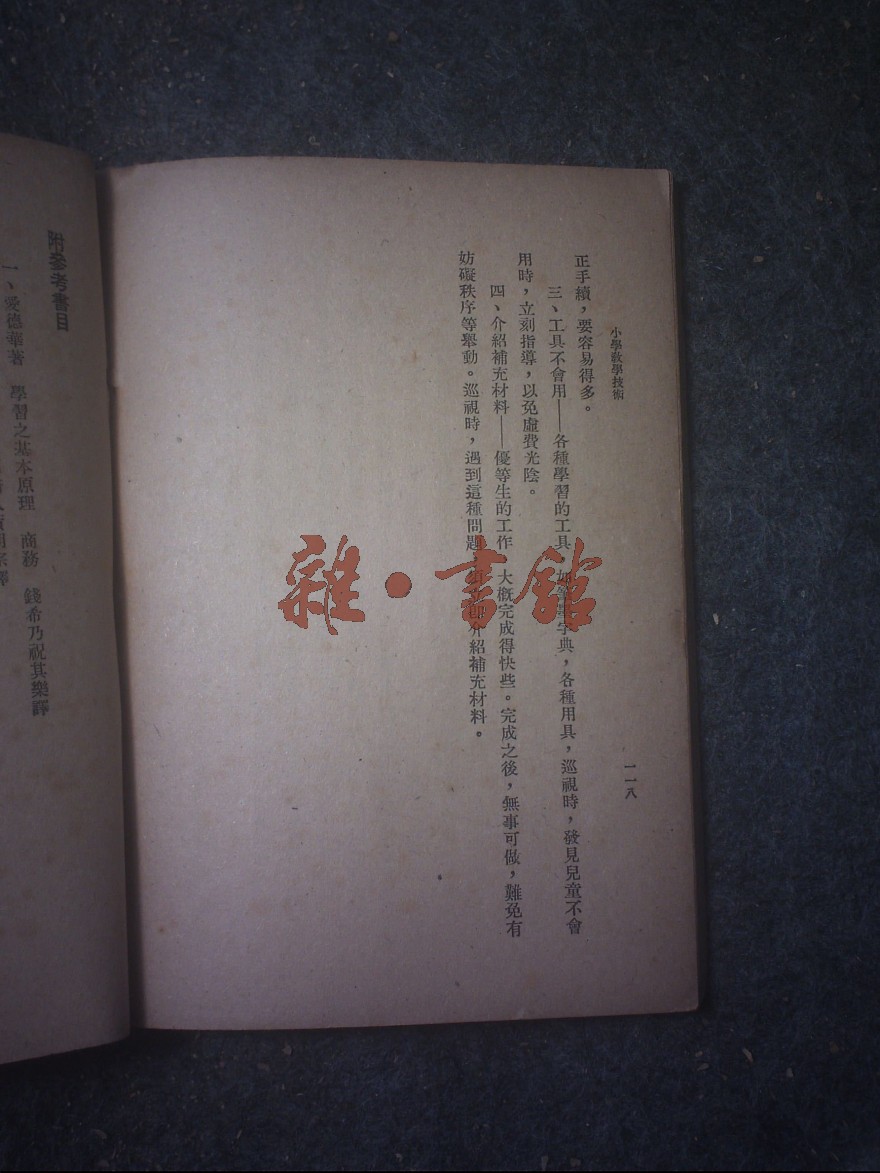 小學教學技術
一一八
正手續，要容易得多。
三、工具不會用——各種學習的工具，如字典，各種用具，巡視時，發見兒童不會
用時，立刻指導，以免虛費光陰。
四、介紹補充材料——優等生的工作，大概完成得快些。完成之後，無事可做，難免有
妨礙秩序等舉動。巡視時，遇到這種問題，卽介紹補充材料。
附參考書目
一、愛德華著 學習之基本原理 商務 錢希乃祝其樂譯
雜・書館